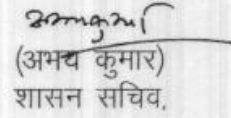 (अभय कुमार)
शासन सचिव,